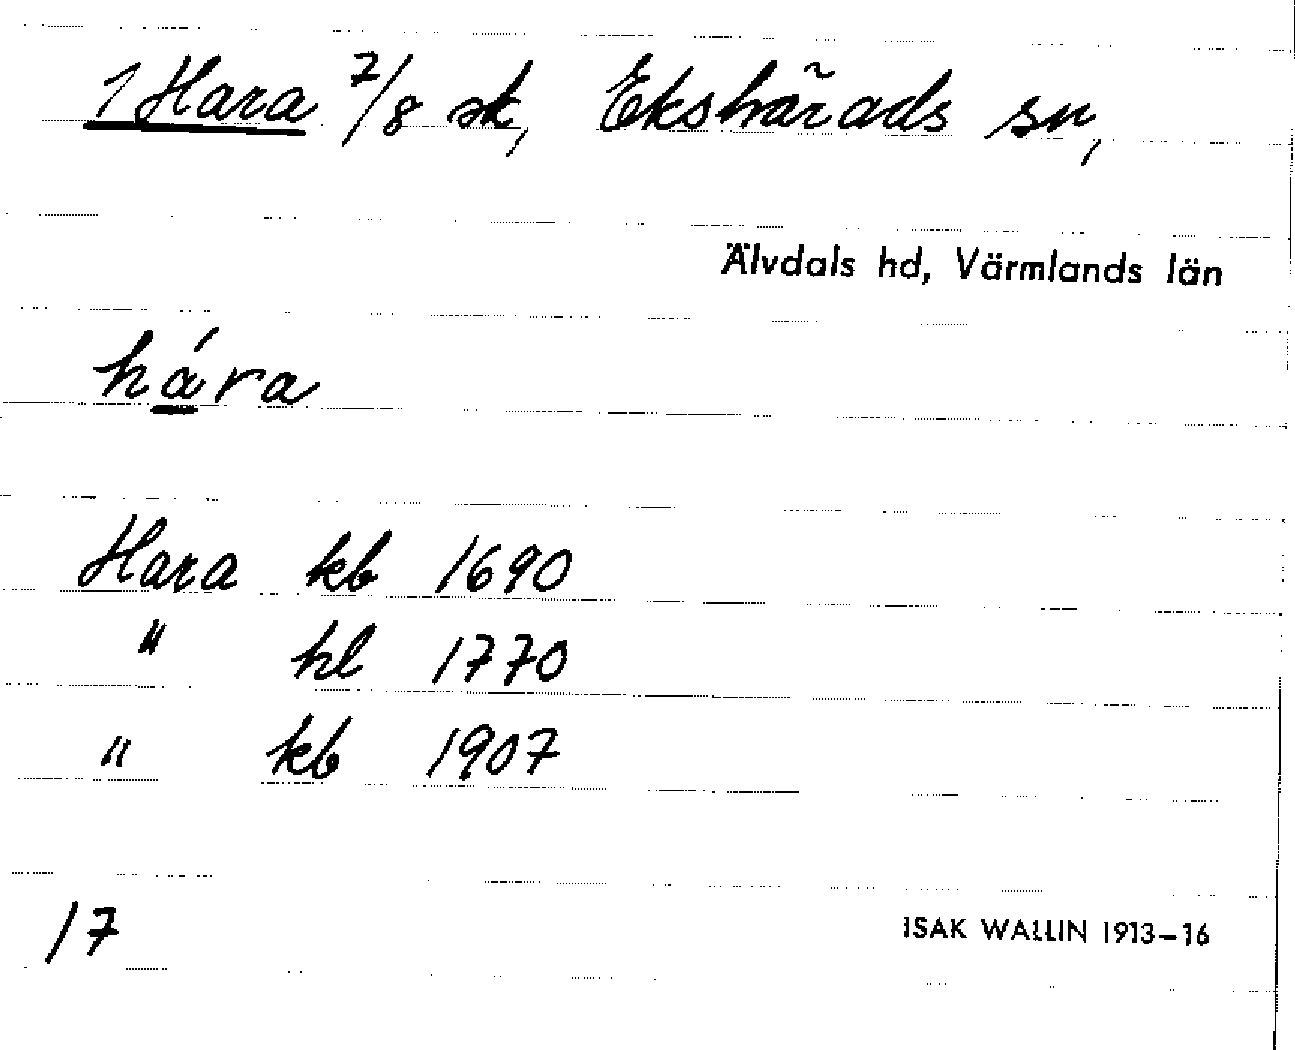 1 Hara 7/8 sk, Ekshärads sn,
Älvdals hd, Värmlands län
hára
Hara kb 1690
" hl 1770
" kb 1907
17
ISAK WALLIN 1913-16